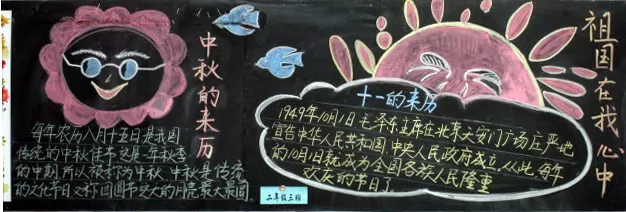 中秋的来历
每年农历八月十五日是我国
传统的中秋佳节这是一年秋季
的中期,所以被称为中秋.中秋是传统
的文化节日又称团圆节.这天的月亮最大最圆
祖国在我心中
十一的来历
1949年10月1日毛泽东主席在北京天安门广场庄严地
宣告中华人民共和国中央人民政府成立,从此,每年
的10月1日就成为全国各族人民隆重
欢庆的节日了
二年级三班